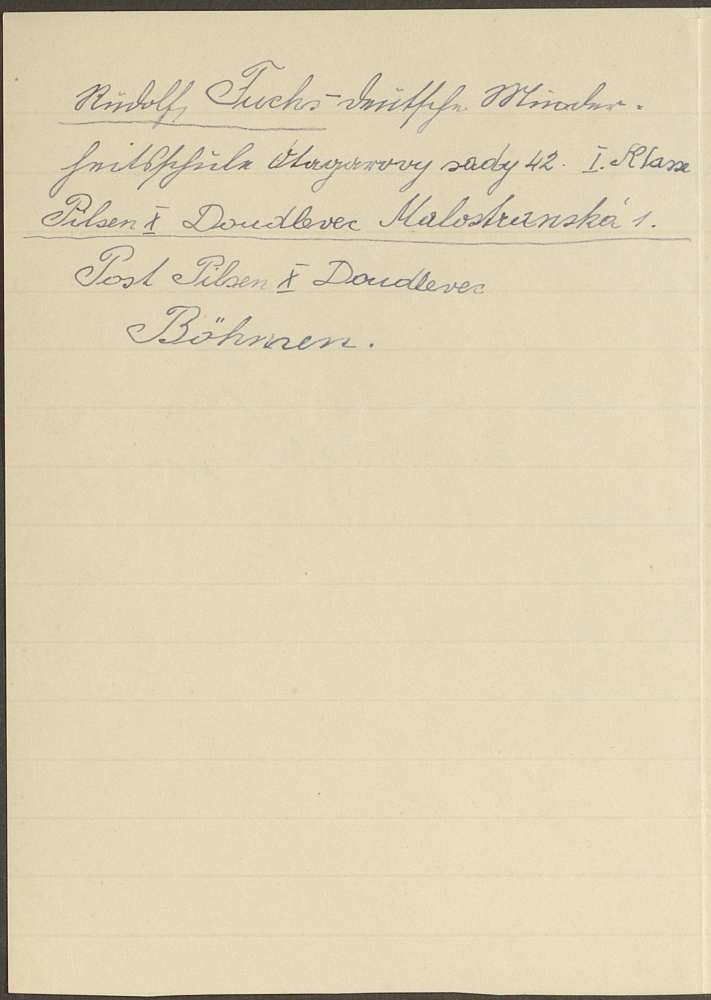 Rudolf Fuchs deutsche Minder-
heitsschule Otagarovy sady 42. I. Klasse
Pilsen X Doudlevec Malostranská 1.
Post Pilsen X Doudlevec
Böhmen.